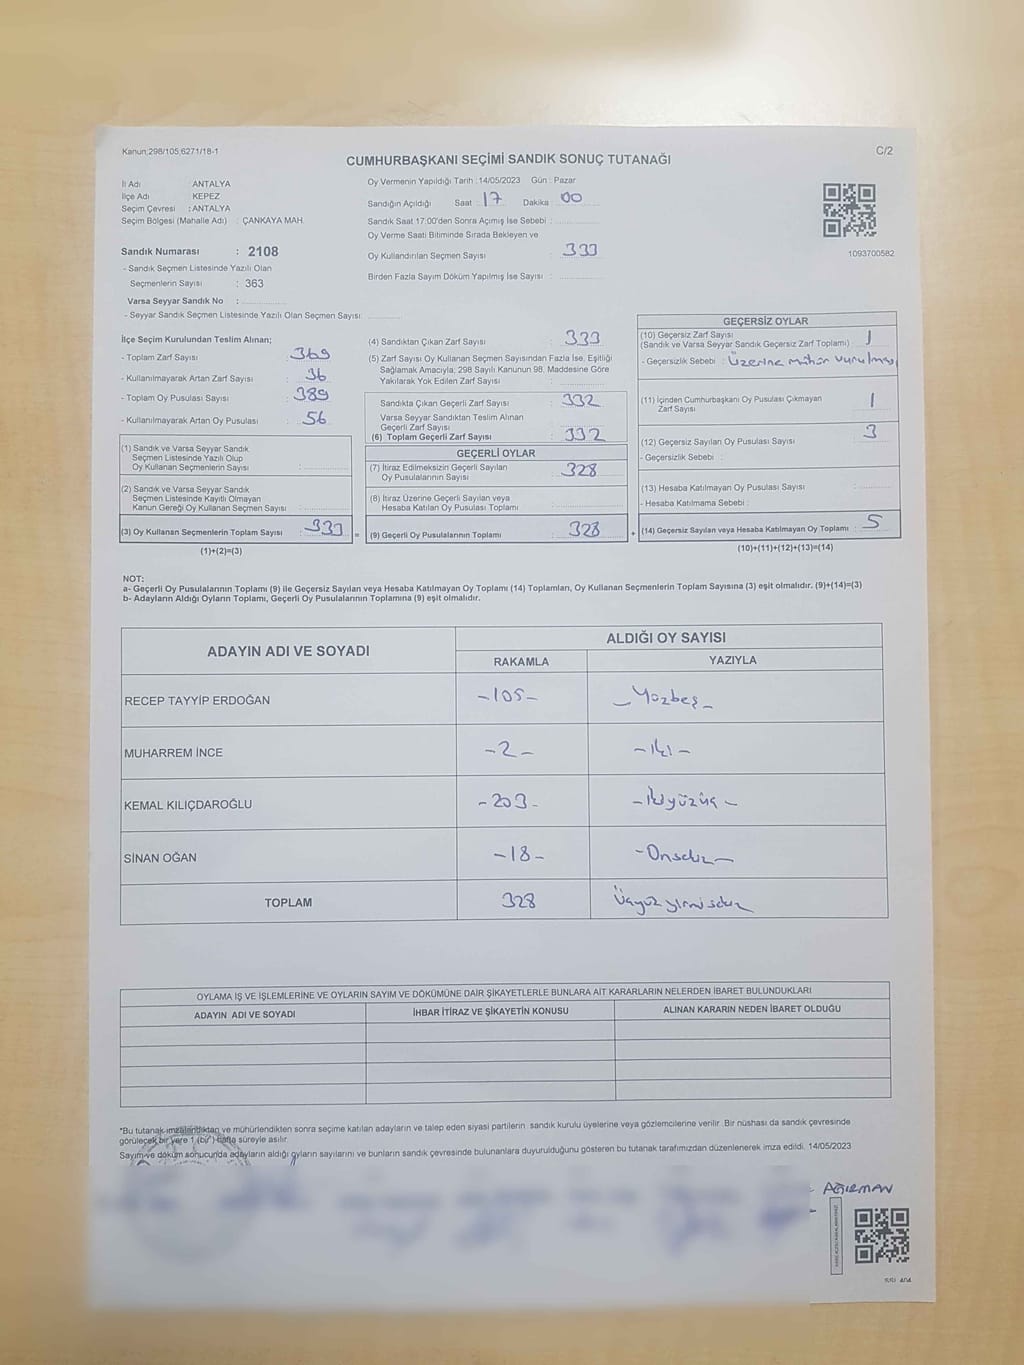 Kanun;298/105;6271/18-1
C/2
CUMHURBAŞKANI SEÇİMİ SANDIK SONUÇ TUTANAĞI
İl Adı : ANTALYA
İlçe Adı : KEPEZ
Seçim Çevresi : ANTALYA
Seçim Bölgesi (Mahalle Adı) : ÇANKAYA MAH.
Sandık Numarası : 2108
- Sandık Seçmen Listesinde Yazılı Olan
Seçmenlerin Sayısı : 363
Varsa Seyyar Sandık No :
- Seyyar Sandık Seçmen Listesinde Yazılı Olan Seçmen Sayısı:
Oy Vermenin Yapıldığı Tarih :14/05/2023 Gün : Pazar
Sandığın Açıldığı Saat : 17 Dakika : 00
Sandık Saat 17.00'den Sonra Açımış İse Sebebi :
Oy Verme Saati Bitiminde Sırada Bekleyen ve
Oy Kullandırılan Seçmen Sayısı : 333
Birden Fazla Sayım Döküm Yapılmış İse Sayısı :
1093700582
İlçe Seçim Kurulundan Teslim Alınan;
- Toplam Zarf Sayısı : 369
- Kullanılmayarak Artan Zarf Sayısı : 36
- Toplam Oy Pusulası Sayısı : 389
- Kullanılmayarak Artan Oy Pusulası : 56
(1) Sandık ve Varsa Seyyar Sandık
Seçmen Listesinde Yazılı Olup
Oy Kullanan Seçmenlerin Sayısı :
(2) Sandık ve Varsa Seyyar Sandık
Seçmen Listesinde Kayıtlı Olmayan
Kanun Gereği Oy Kullanan Seçmen Sayısı :
(3) Oy Kullanan Seçmenlerin Toplam Sayısı : 333 =
(1)+(2)=(3)
(4) Sandıktan Çıkan Zarf Sayısı : 333
(5) Zarf Sayısı Oy Kullanan Seçmen Sayısından Fazla İse, Eşitliği
Sağlamak Amacıyla, 298 Sayılı Kanunun 98. Maddesine Göre
Yakılarak Yok Edilen Zarf Sayısı :
Sandıkta Çıkan Geçerli Zarf Sayısı : 332
Varsa Seyyar Sandıktan Teslim Alınan
Geçerli Zarf Sayısı :
(6) Toplam Geçerli Zarf Sayısı : 332
GEÇERLİ OYLAR
(7) İtiraz Edilmeksizin Geçerli Sayılan
Oy Pusulalarının Sayısı : 328
(8) İtiraz Üzerine Geçerli Sayılan veya
Hesaba Katılan Oy Pusulası Toplamı :
(9) Geçerli Oy Pusulalarının Toplamı : 328 +
GEÇERSİZ OYLAR
(10) Geçersiz Zarf Sayısı
(Sandık ve Varsa Seyyar Sandık Geçersiz Zarf Toplamı) : 1
- Geçersizlik Sebebi : Üzerine mühür vurulması
(11) İçinden Cumhurbaşkanı Oy Pusulası Çıkmayan
Zarf Sayısı : 1
(12) Geçersiz Sayılan Oy Pusulası Sayısı : 3
- Geçersizlik Sebebi :
(13) Hesaba Katılmayan Oy Pusulası Sayısı :
- Hesaba Katılmama Sebebi :
(14) Geçersiz Sayılan veya Hesaba Katılmayan Oy Toplamı : 5
(10)+(11)+(12)+(13)=(14)
NOT:
a- Geçerli Oy Pusulalarının Toplamı (9) ile Geçersiz Sayılan veya Hesaba Katılmayan Oy Toplamı (14) Toplamları, Oy Kullanan Seçmenlerin Toplam Sayısına (3) eşit olmalıdır. (9)+(14)=(3)
b- Adayların Aldığı Oyların Toplamı, Geçerli Oy Pusulalarının Toplamına (9) eşit olmalıdır.
ADAYIN ADI VE SOYADI
ALDIĞI OY SAYISI
RAKAMLA YAZIYLA
RECEP TAYYİP ERDOĞAN -105- -Yüzbeş-
MUHARREM İNCE -2- -iki-
KEMAL KILIÇDAROĞLU -203- -ikiyüzüç-
SİNAN OĞAN -18- -Onsekiz-
TOPLAM 328 Üçyüzyirmisekiz
OYLAMA İŞ VE İŞLEMLERİNE VE OYLARIN SAYIM VE DÖKÜMÜNE DAİR ŞİKAYETLERLE BUNLARA AİT KARARLARIN NELERDEN İBARET BULUNDUKLARI
ADAYIN ADI VE SOYADI İHBAR İTİRAZ VE ŞİKAYETİN KONUSU ALINAN KARARIN NEDEN İBARET OLDUĞU
*Bu tutanak imzalandıktan ve mühürlendikten sonra seçime katılan adayların ve talep eden siyasi partilerin sandık kurulu üyelerine veya gözlemcilerine verilir. Bir nüshası da sandık çevresinde
görülecek bir yere 1 (bir) hafta süreyle asılır.
Sayım ve döküm sonucunda adayların aldığı oyların sayılarını ve bunların sandık çevresinde bulunanlara duyurulduğunu gösteren bu tutanak tarafımızdan düzenlenerek imza edildi. 14/05/2023
AĞIRMAN